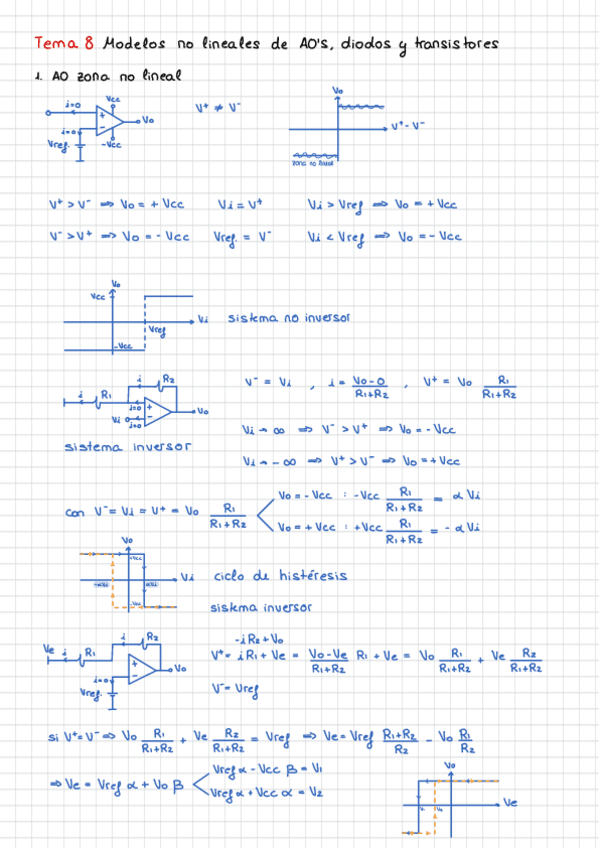 Tema 8 Modelos no lineales de AO's, diodos y transistores
1. AO zona no lineal
i=0 Vcc + - Vo i=0 Vref -Vcc
V⁺ ≠ V⁻
Vo V⁺- V⁻ zona no lineal
V⁺ > V⁻ => Vo = + Vcc Vi = V⁺ Vi > Vref => Vo = + Vcc
V⁻ > V⁺ => Vo = - Vcc Vref. = V⁻ Vi < Vref => Vo = - Vcc
Vo Vcc Vi Vref -Vcc
sistema no inversor
i R1 i R2 i=0 + - Vi i=0 Vo
V⁻ = Vi , i = Vo-0/R1+R2 , V⁺ = Vo R1/R1+R2
Vi → ∞ => V⁻ > V⁺ => Vo = - Vcc
sistema inversor
Vi → - ∞ => V⁺ > V⁻ => Vo = + Vcc
con V⁻ = Vi = V⁺ = Vo R1/R1+R2
Vo = - Vcc : -Vcc R1/R1+R2 = α Vi
Vo = + Vcc : +Vcc R1/R1+R2 = - α Vi
Vo Vi
ciclo de histéresis
sistema inversor
Ve i R1 i R2 i=0 + - Vo Vref.
-iR2+Vo
V⁺ = iR1 + Ve = Vo-Ve/R1+R2 R1 + Ve = Vo R1/R1+R2 + Ve R2/R1+R2
V⁻ = Vref
si V⁺=V⁻ => Vo R1/R1+R2 + Ve R2/R1+R2 = Vref => Ve = Vref R1+R2/R2 - Vo R1/R2
=> Ve = Vref α + Vo β
Vref α - Vcc β = V1
Vref α + Vcc α = V2
Vo Ve